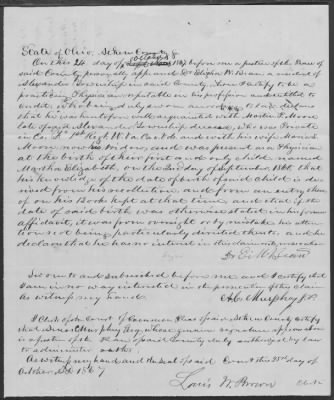 State of Ohio, Athens County SS
On this 24 day of October 1867 before me a Justice of the Peace of
said County personally appeared Dr Elisha W. Bean a resident of
Alexander Township in said County, whom I certify to be a
practicing Physician reputable in his profession and entitled to
credit, who being duly sworn according to law declares
that he was heretofore well acquainted with Martin L Moore
late of said Alexander Township deceased, who was Private
in Co. Regt. W. Va. and with his wife Hannah
Moore now his widow, and was present as a Physician
at the birth of their first and only child named
Martha Elizabeth, on the day of September 1861, that
his knowledge of the date of birth of said child is de
rived from his recollection and from an entry then
of on his Book kept at that time, and that if the
date of said birth was otherwise stated in his former
affidavit, it was from oversight or by mistake his atten
tion not being particularly directed thereto, and he
declares that he has no interest in the claim
Dr E. W. Bean
Sworn to and subscribed before me and I certify that
I am in no way interested in the prosecution of this claim
As witness my hand.
Murphey J.P.
I Clerk of the Court of Common Pleas of said Athens County certify
that Murphey Esq. whose genuine signature appears above
is a Justice of the Peace of said County duly authorized by law
to administer oaths.
As witness my hand and the seal of said Court this 25th day of
October AD 1867
Louis W. Brown
Clerk